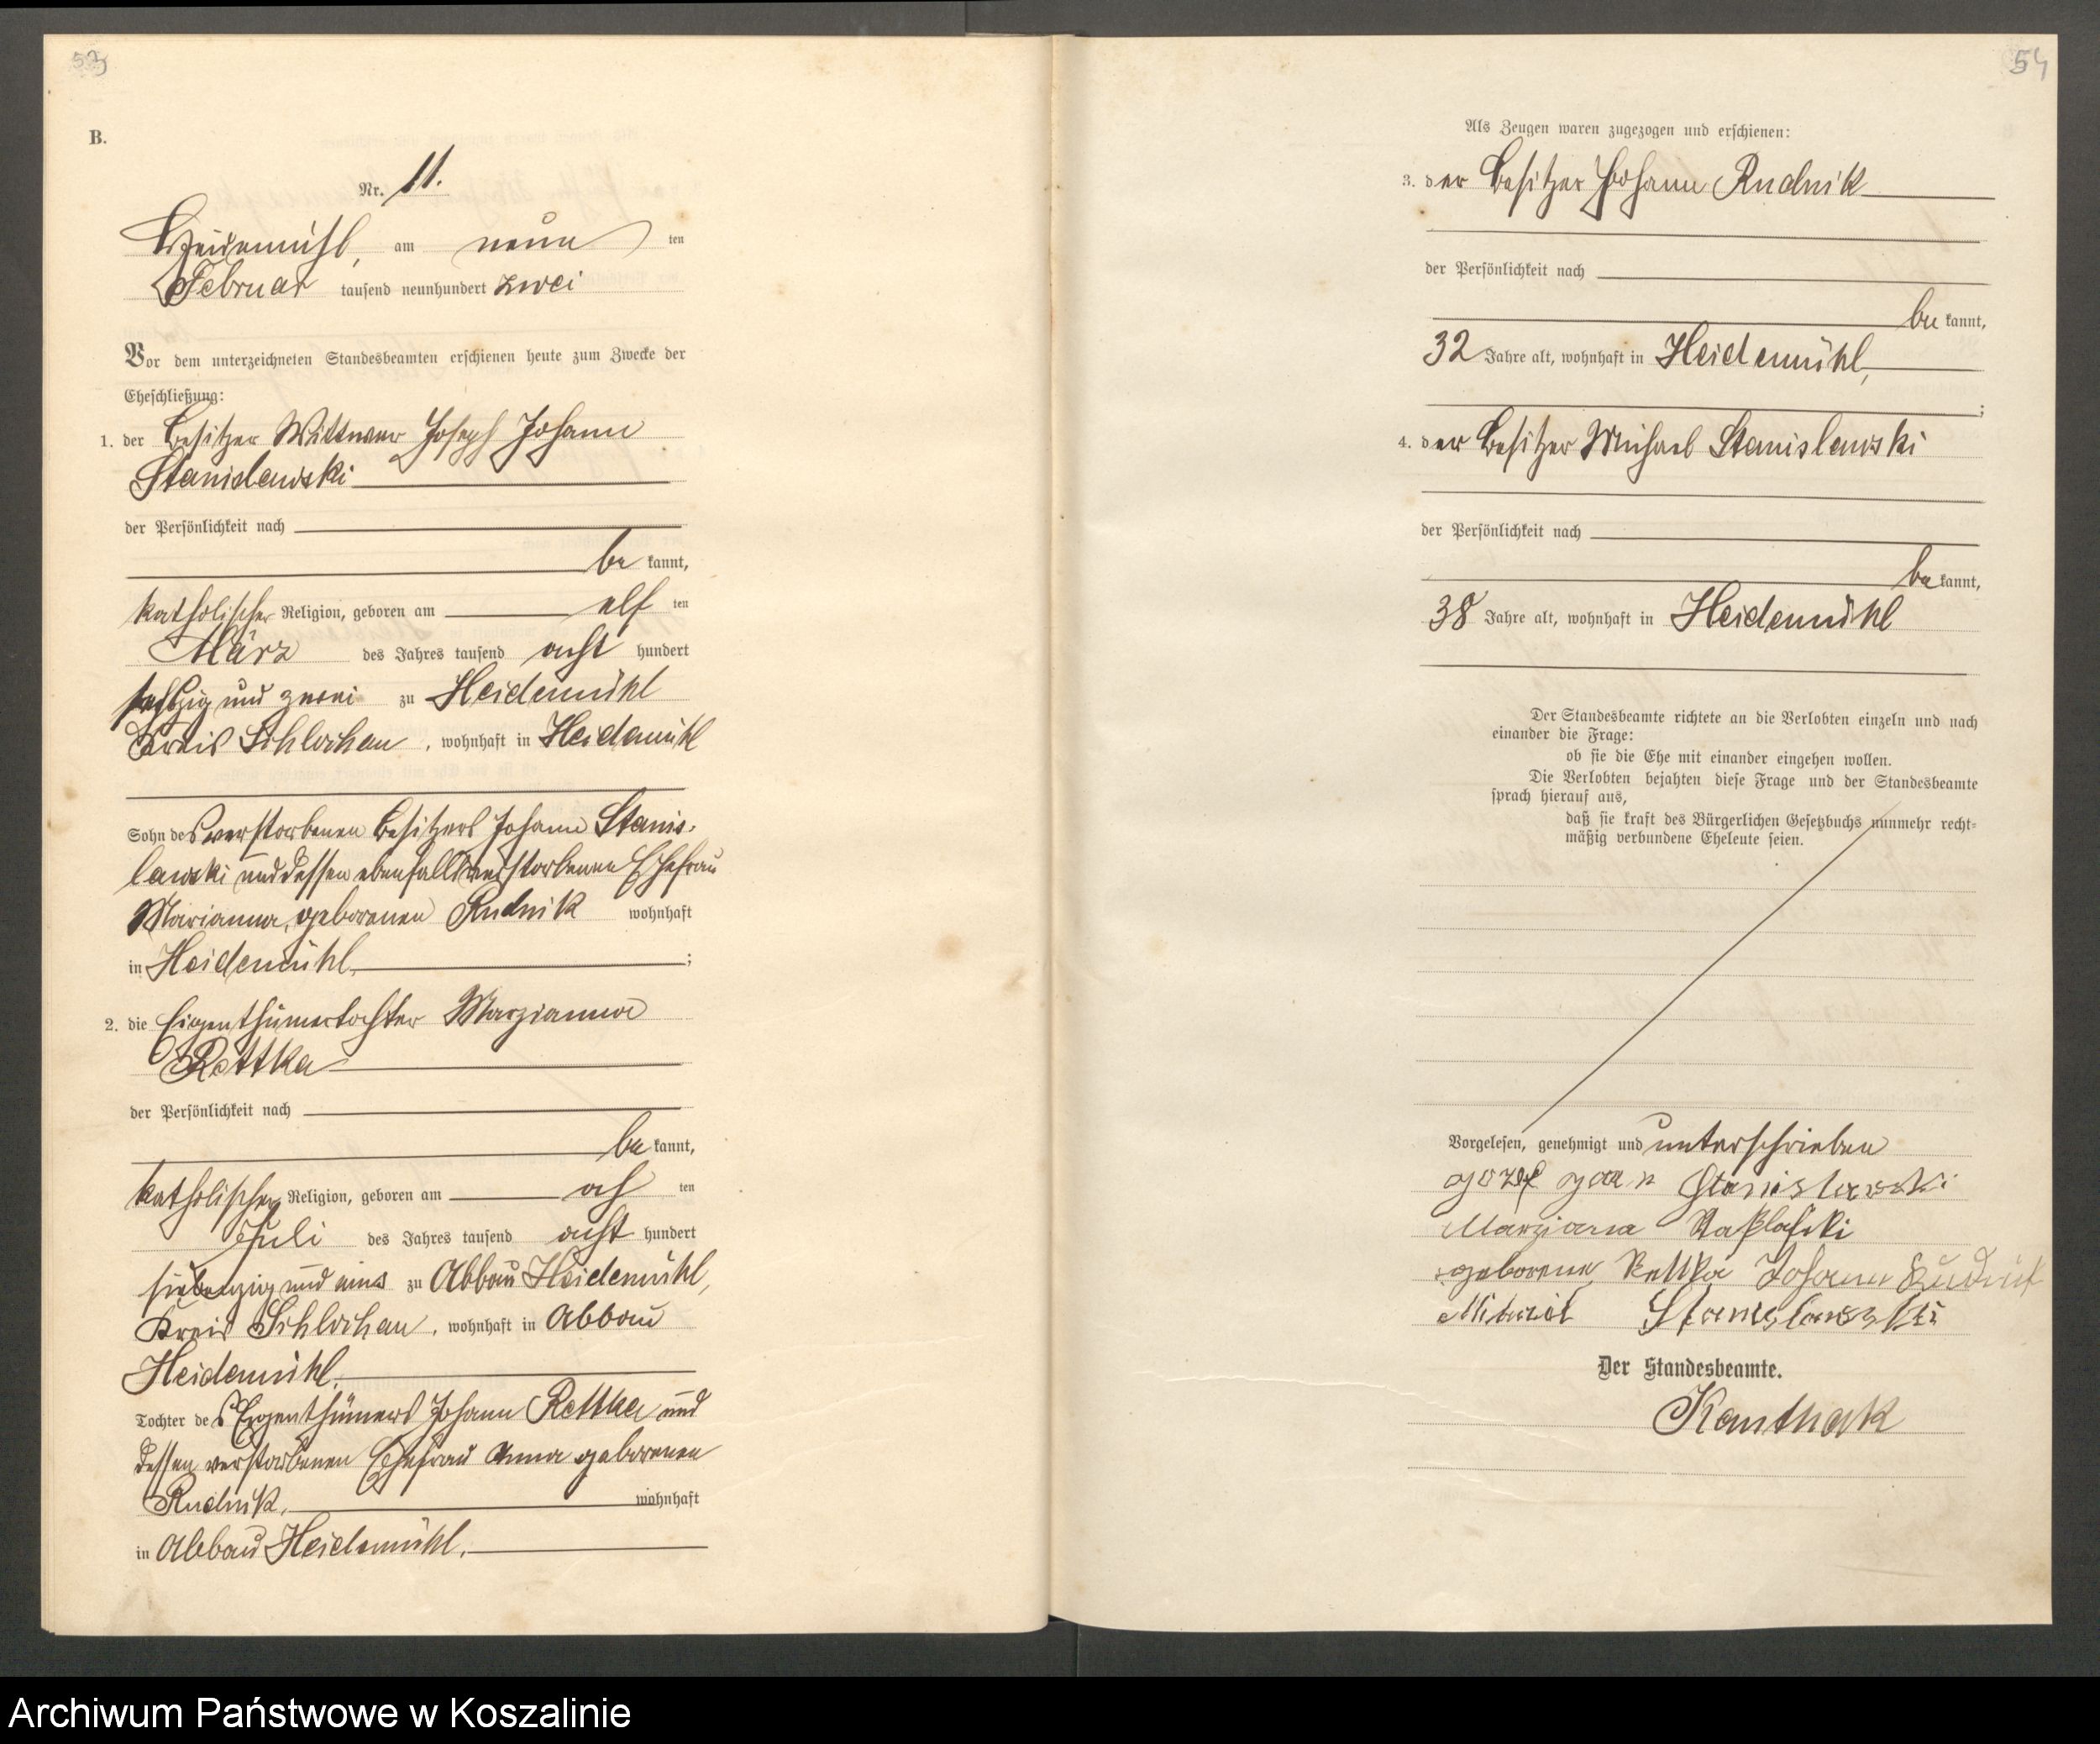 53
B.
Nr. 11.
Heidemühl, am neun ten
Februar tausend neunhundert zwei
Vor dem unterzeichneten Standesbeamten erschienen heute zum Zwecke der
Eheschließung:
1. der Besitzer Wittwer Joseph Johann
Stanislawski
der Persönlichkeit nach
be kannt,
katholischer Religion, geboren am elf ten
März des Jahres tausend acht hundert
sechszig und zwei zu Heidemühl
Kreis Schlochau, wohnhaft in Heidemühl
Sohn des verstorbenen Besitzers Johann Stanis-
lawski und dessen ebenfalls verstorbenen Ehefrau
Marianna, geborenen Rudnik wohnhaft
in Heidemühl ;
2. die Eigenthümertochter Marzianna
Rettka
der Persönlichkeit nach
be kannt,
katholischer Religion, geboren am ach ten
Juli des Jahres tausend acht hundert
siebenzig und eins zu Abbau Heidemühl,
Kreis Schlochau, wohnhaft in Abbau
Heidemühl.
Tochter des Eigenthümers Johann Rettka und
dessen verstorbenen Ehefrau Anna geborenen
Rudnik, wohnhaft
in Abbau Heidemühl.
54
Als Zeugen waren zugezogen und erschienen:
3. der Besitzer Johann Rudnik
der Persönlichkeit nach
be kannt,
32 Jahre alt, wohnhaft in Heidemühl,
;
4. der Besitzer Michael Stanislawski
der Persönlichkeit nach
be kannt,
38 Jahre alt, wohnhaft in Heidemühl
Der Standesbeamte richtete an die Verlobten einzeln und nach
einander die Frage:
ob sie die Ehe mit einander eingehen wollen.
Die Verlobten bejahten diese Frage und der Standesbeamte
sprach hierauf aus,
daß sie kraft des Bürgerlichen Gesetzbuchs nunmehr recht=
mäßig verbundene Eheleute seien.
Vorgelesen, genehmigt und unterschrieben
Jozef Jan Stanislawski
Marziana
geborene Rettka Johann Rudnik
Michael Stanislawski
Der Standesbeamte.
Kanthak
Archiwum Państwowe w Koszalinie